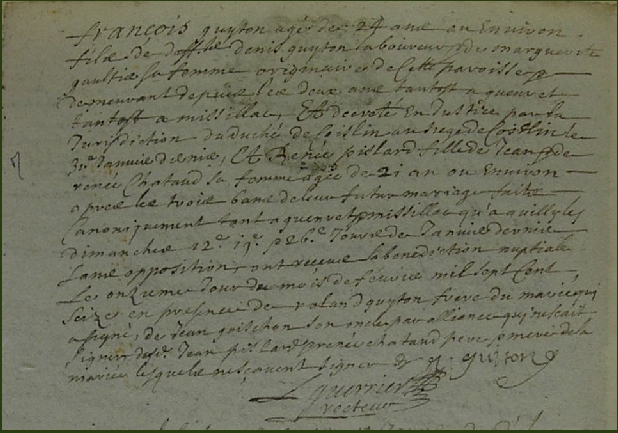 françois guyton agé de 24 ans ou Environ
fils de deff.t denis guyton laboureur et de marguerite
gaultier sa femme originaire de cette paroisse et
demeurant depuis les deux ans tantost a guenrouet
tantost a missillac, Et decreté En Justice par la
Jurisdiction du duché de Coislin au siege de le
31.e Janvier dernier, Et Renée pislard fille de Jean et de
renée Chatand sa femme agée de 21 an ou Environ
apres les trois bans de leur futur mariage faits
Canoniquement tant a guenrouet et missillac qu'a quilly les
dimanches 12.e 19.e et 26.e Jours de Janvier dernier
sans opposition, ont receus la benediction nuptiale
Les onzieme Jour du mois de fevrier mil sept Cent
seize en presence de roland guyton frere du marié qui
a signé, de Jean son oncle par alliance qui ne scait
signer Jean pislard et renée chatand pere et mere de la
mariée lesquels ne scavent signer guiton
Lguerrier
recteur